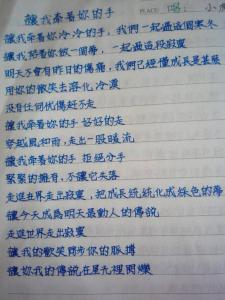 讓我牽着妳的手
PLACE 唱: 小虎
讓我牽着妳冷冷的手, 我們一起過這個寒冬
讓我陪着妳放一個夢, 一起過這段寂寞
明天不會有昨日的傷痛, 我們已經懂成長是甚麼
用妳的微笑去溶化冷漠
沒有任何忧傷赶不走
讓我牽着妳的手 好好的走
穿越風和雨, 走出一段暖流
讓我牽着妳的手 拒絕分手
緊緊的擁有, 不讓它失落
走進世界走出寂寞, 把成長統統化成綠色的夢
讓今天成為明天最動人的傳說
走進世界走出寂寞
讓我的歡笑同步你的脈搏
讓妳我的傳說在星光裡閃爍